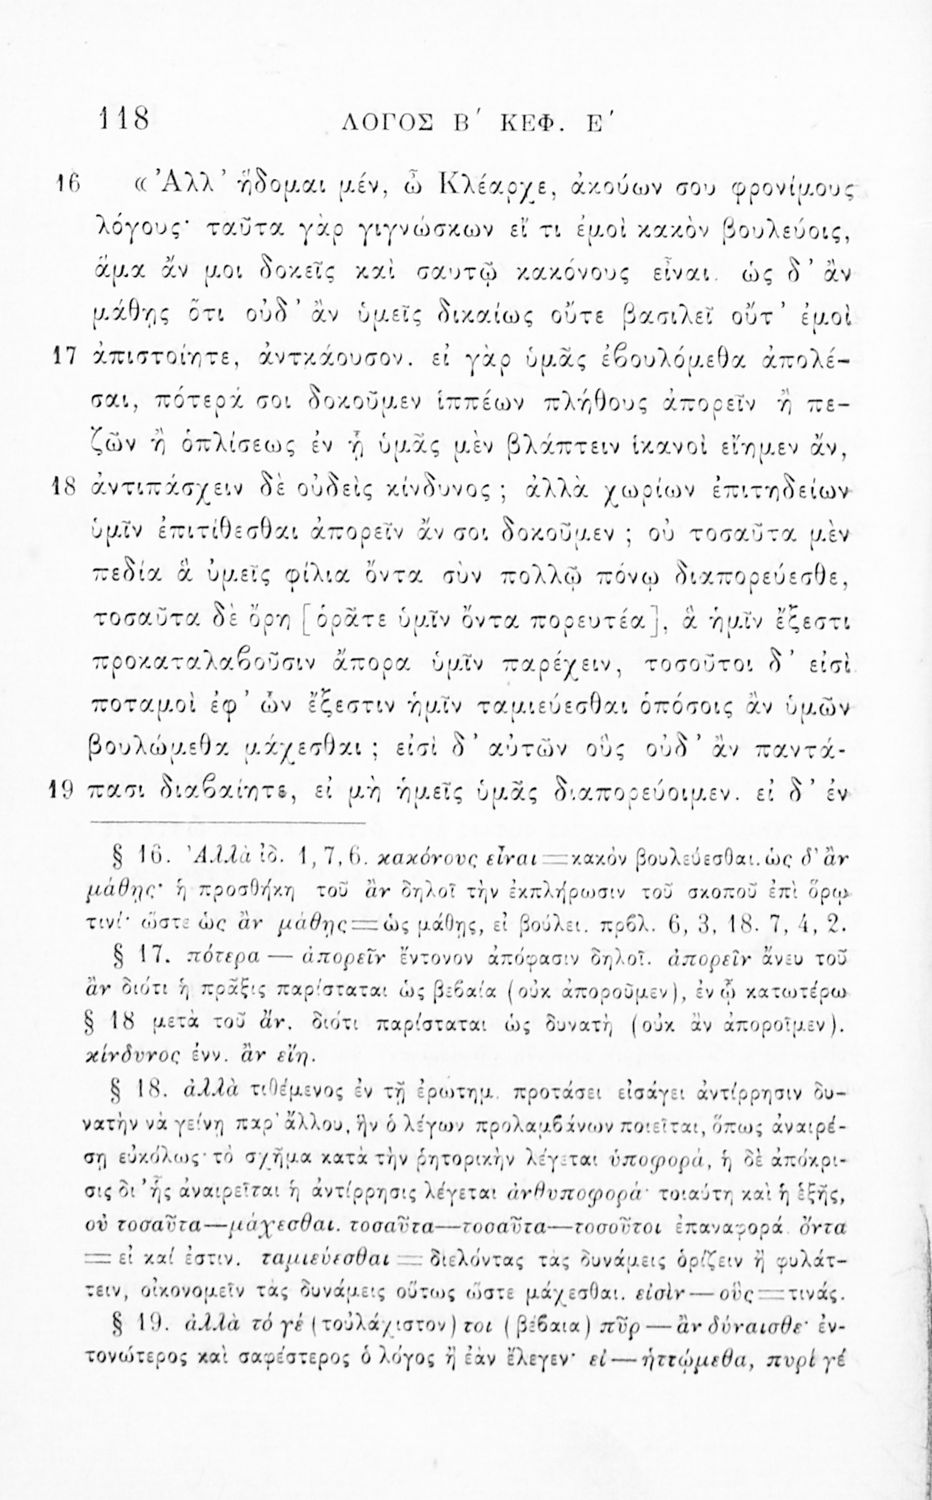 118 ΛΟΓΟΣ Β΄ ΚΕΦ. Ε΄
16 «Ἀλλ' ἥδομαι μέν, ὦ Κλέαρχε, ἀκούων σου φρονίμους
λόγους· ταῦτα γὰρ γιγνώσκων εἴ τι ἐμοὶ κακὸν βουλεύοις,
ἅμα ἄν μοι δοκεῖς καὶ σαυτῷ κακόνους εἶναι. ὡς δ' ἂν
μάθῃς ὅτι οὐδ' ἂν ὑμεῖς δικαίως οὔτε βασιλεῖ οὔτ' ἐμοὶ
17 ἀπιστοίητε, ἀντκάουσον. εἰ γὰρ ὑμᾶς ἐβουλόμεθα ἀπολέ-
σαι, πότερά σοι δοκοῦμεν ἱππέων πλήθους ἀπορεῖν ἢ πε-
ζῶν ἢ ὁπλίσεως ἐν ᾗ ὑμᾶς μὲν βλάπτειν ἱκανοὶ εἴημεν ἄν,
18 ἀντιπάσχειν δὲ οὐδεὶς κίνδυνος ; ἀλλὰ χωρίων ἐπιτηδείων
ὑμῖν ἐπιτίθεσθαι ἀπορεῖν ἄν σοι δοκοῦμεν ; οὐ τοσαῦτα μὲν
πεδία ἃ ὑμεῖς φίλια ὄντα σὺν πολλῷ πόνῳ διαπορεύεσθε,
τοσαῦτα δὲ ὄρη [ὁρᾶτε ὑμῖν ὄντα πορευτέα], ἃ ἡμῖν ἔξεστι
προκαταλαβοῦσιν ἄπορα ὑμῖν παρέχειν, τοσοῦτοι δ' εἰσὶ
ποταμοὶ ἐφ' ὧν ἔξεστιν ἡμῖν ταμιεύεσθαι ὁπόσοις ἂν ὑμῶν
βουλώμεθα μάχεσθαι ; εἰσὶ δ' αὐτῶν οὓς οὐδ' ἂν παντά-
19 πασι διαβαίητε, εἰ μὴ ἡμεῖς ὑμᾶς διαπορεύοιμεν. εἰ δ' ἐν
§ 16. Ἀλλὰ ἰδ. 1,7,6. κακόνους εἶναι = κακὸν βουλεύεσθαι. ὡς δ' ἂν
μάθῃς· ἡ προσθήκη τοῦ ἂν δηλοῖ τὴν ἐκπλήρωσιν τοῦ σκοποῦ ἐπὶ ὅρῳ
τινί· ὥστε ὡς ἂν μάθῃς = ὡς μάθῃς, εἰ βούλει. πρβλ. 6, 3, 18. 7, 4, 2.
§ 17. πότερα — ἀπορεῖν ἔντονον ἀπόφασιν δηλοῖ. ἀπορεῖν ἄνευ τοῦ
ἂν διότι ἡ πρᾶξις παρίσταται ὡς βεβαία (οὐκ ἀποροῦμεν), ἐν ᾧ κατωτέρω
§ 18 μετὰ τοῦ ἄν. διότι παρίσταται ὡς δυνατὴ (οὐκ ἂν ἀποροῖμεν).
κίνδυνος ἐνν. ἂν εἴη.
§ 18. ἀλλὰ τιθέμενος ἐν τῇ ἐρωτημ. προτάσει εἰσάγει ἀντίρρησιν δυ-
νατὴν νὰ γείνῃ παρ' ἄλλου, ἣν ὁ λέγων προλαμβάνων ποιεῖται, ὅπως ἀναιρέ-
σῃ εὐκόλως· τὸ σχῆμα κατὰ τὴν ῥητορικὴν λέγεται ὑποφορά, ἡ δὲ ἀπόκρι-
σις δι' ἧς ἀναιρεῖται ἡ ἀντίρρησις λέγεται ἀνθυποφορά· τοιαύτη καὶ ἡ ἑξῆς,
οὐ τοσαῦτα—μάχεσθαι. τοσαῦτα—τοσαῦτα—τοσοῦτοι ἐπαναφορά. ὄντα
= εἰ καί ἐστιν. ταμιεύεσθαι = διελόντας τὰς δυνάμεις ὁρίζειν ἢ φυλάτ-
τειν, οἰκονομεῖν τὰς δυνάμεις οὕτως ὥστε μάχεσθαι. εἰσὶν — οὓς = τινάς.
§ 19. ἀλλὰ τό γέ (τοὐλάχιστον) τοι (βέβαια) πῦρ — ἂν δύναισθε· ἐν-
τονώτερος καὶ σαφέστερος ὁ λόγος ἢ ἐὰν ἔλεγεν· εἰ — ἡττῴμεθα, πυρί γέ